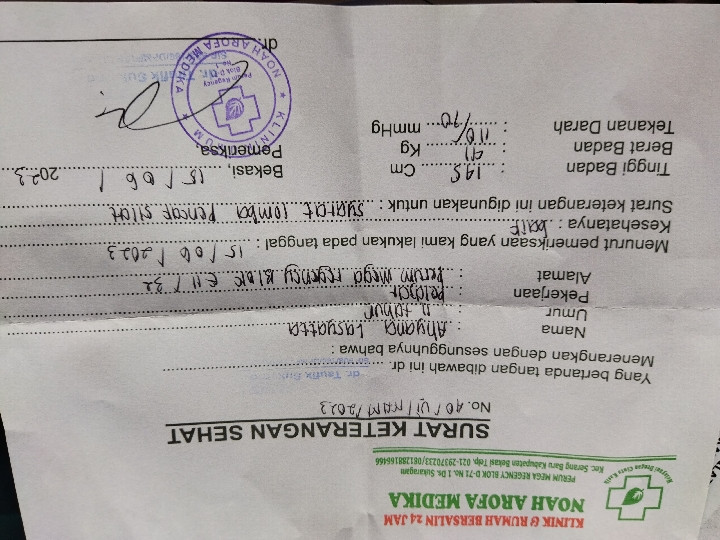 KLINIK & RUMAH BERSALIN 24 JAM
NOAH AROFA MEDIKA
PERUM MEGA REGENCY BLOK D N 71 No. 1 Ds. Sukaragam
Kec. Serang Baru Kabupaten Bekasi Telp. 021-29370233/081288166466
SURAT KETERANGAN SEHAT
No. 40/VI/NAM/2023
Yang bertanda tangan dibawah ini dr. dr. Taufik
Menerangkan dengan sesungguhnya bahwa :
Nama : Ahyana Lasyatta
Umur : 11 tahun
Pekerjaan : Pelajar
Alamat : Perum Mega regency Blok E 11 / 32
Menurut pemeriksaan yang kami lakukan pada tanggal : 15 / 06 / 2023
Kesehatanya : baik
Surat keterangan ini digunakan untuk : syarat lomba Pencak silat
Tinggi Badan : 145 Cm
Berat Badan : 41 Kg
Tekanan Darah : 110/70 mmHg
Bekasi, 15 / 06 / 2023
Pemeriksa,
KLINIK UMUM
NOAH AROFA MEDIKA
Perum Regency
Blok D
No. 1
dr.